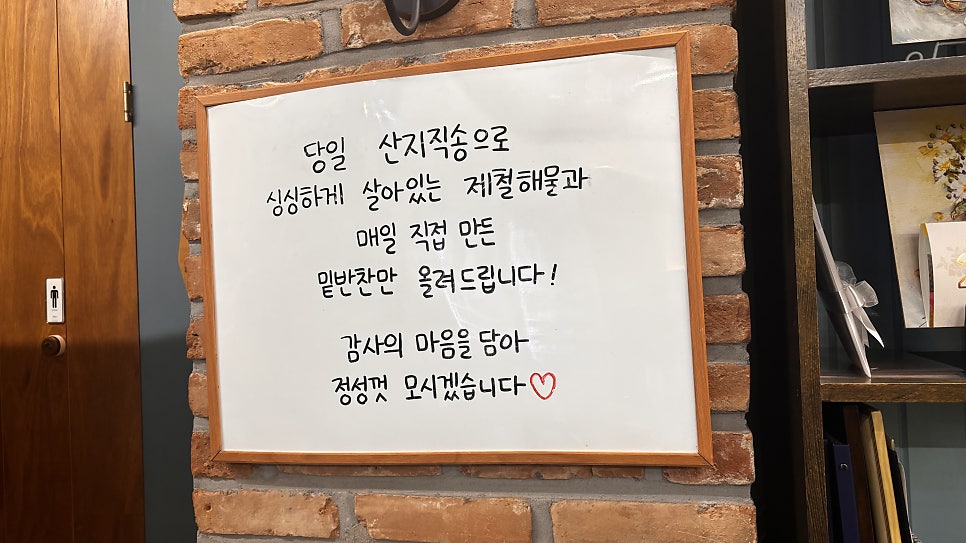 당일 산지직송으로
싱싱하게 살아있는 제철해물과
매일 직접 만든
밑반찬만 올려드립니다!
감사의 마음을 담아
정성껏 모시겠습니다♡